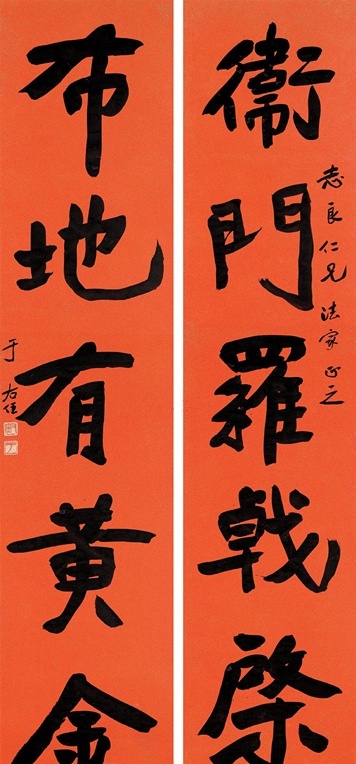 衛門羅戟棨
志良仁兄法家正之
布地有黃金
于右任